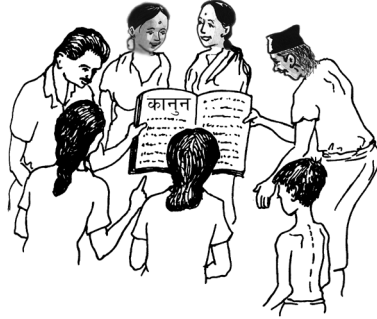 कानुन